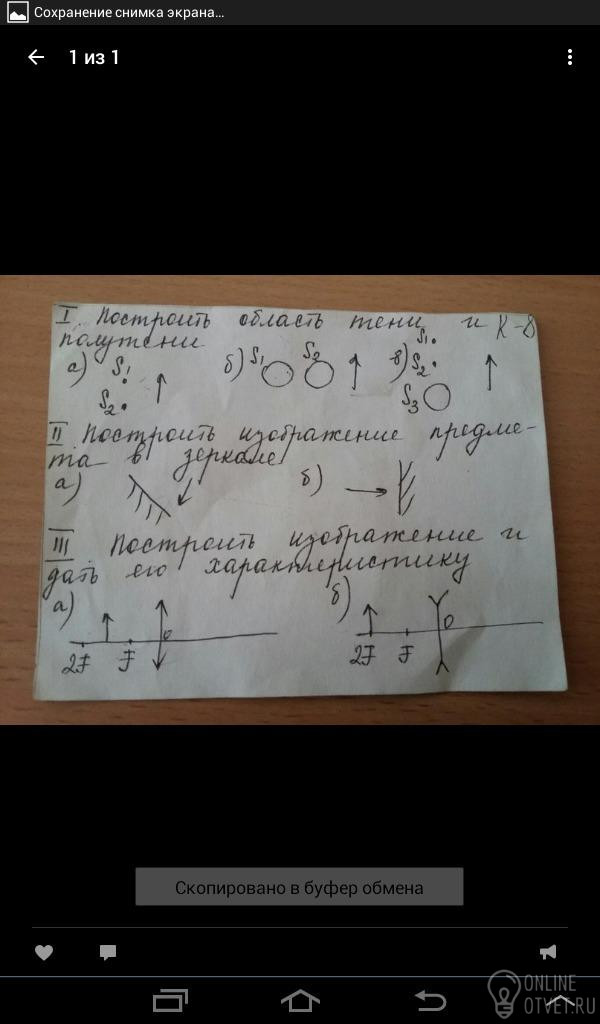 Сохранение снимка экрана...
1 из 1
I. Построить область тени и К-8
полутени
а) S1 S2 б) S1 S2 в) S1 S2 S3
II Построить изображение предме-
та в зеркале
а) б)
III Построить изображение и
дать его характеристику
а) б)
2F F 0 2F F 0
Скопировано в буфер обмена
ONLINE
OTVET.RU